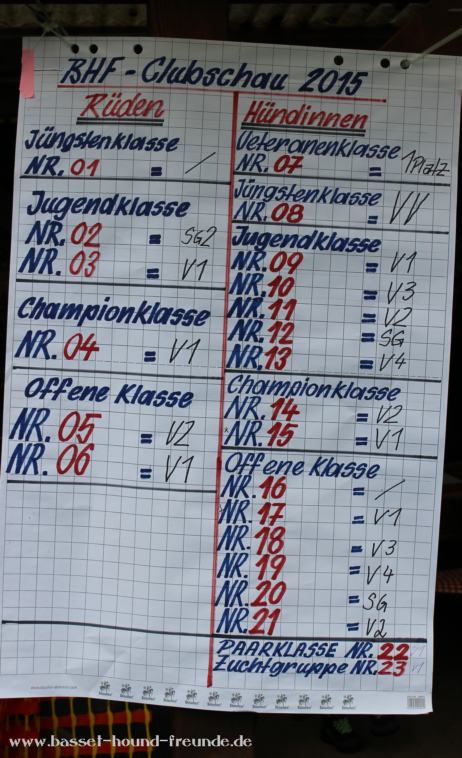 BHF - Clubschau 2015
Rüden
Jüngstenklasse
NR. 01 = /
Jugendklasse
NR. 02 = SG2
NR. 03 = V1
Championklasse
NR. 04 = V1
Offene Klasse
NR. 05 = V2
NR. 06 = V1
Hündinnen
Veteranenklasse
NR. 07 = 1Platz
Jüngstenklasse
NR. 08 = VV
Jugendklasse
NR. 09 = V1
NR. 10 = V3
NR. 11 = V2
NR. 12 = SG
NR. 13 = V4
Championklasse
NR. 14 = V2
NR. 15 = V1
Offene Klasse
NR. 16 = /
NR. 17 = V1
NR. 18 = V3
NR. 19 = V4
NR. 20 = SG
NR. 21 = V2
PAARKLASSE NR. 22
Zuchtgruppe NR. 23
www.basset-hound-freunde.de